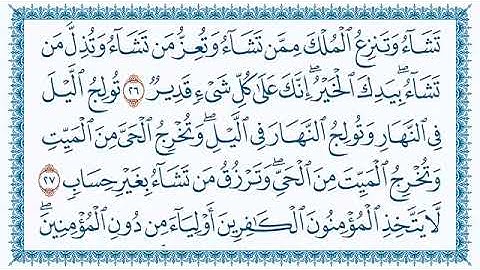 تَشَآءُ وَتَنزِعُ ٱلۡمُلۡكَ مِمَّن تَشَآءُ وَتُعِزُّ مَن تَشَآءُ وَتُذِلُّ مَن
تَشَآءُۖ بِيَدِكَ ٱلۡخَيۡرُۖ إِنَّكَ عَلَىٰ كُلِّ شَيۡءٖ قَدِيرٞ ٢٦ تُولِجُ ٱلَّيۡلَ
فِي ٱلنَّهَارِ وَتُولِجُ ٱلنَّهَارَ فِي ٱلَّيۡلِۖ وَتُخۡرِجُ ٱلۡحَيَّ مِنَ ٱلۡمَيِّتِ
وَتُخۡرِجُ ٱلۡمَيِّتَ مِنَ ٱلۡحَيِّۖ وَتَرۡزُقُ مَن تَشَآءُ بِغَيۡرِ حِسَابٖ ٢٧
لَّا يَتَّخِذِ ٱلۡمُؤۡمِنُونَ ٱلۡكَٰفِرِينَ أَوۡلِيَآءَ مِن دُونِ ٱلۡمُؤۡمِنِينَۖ